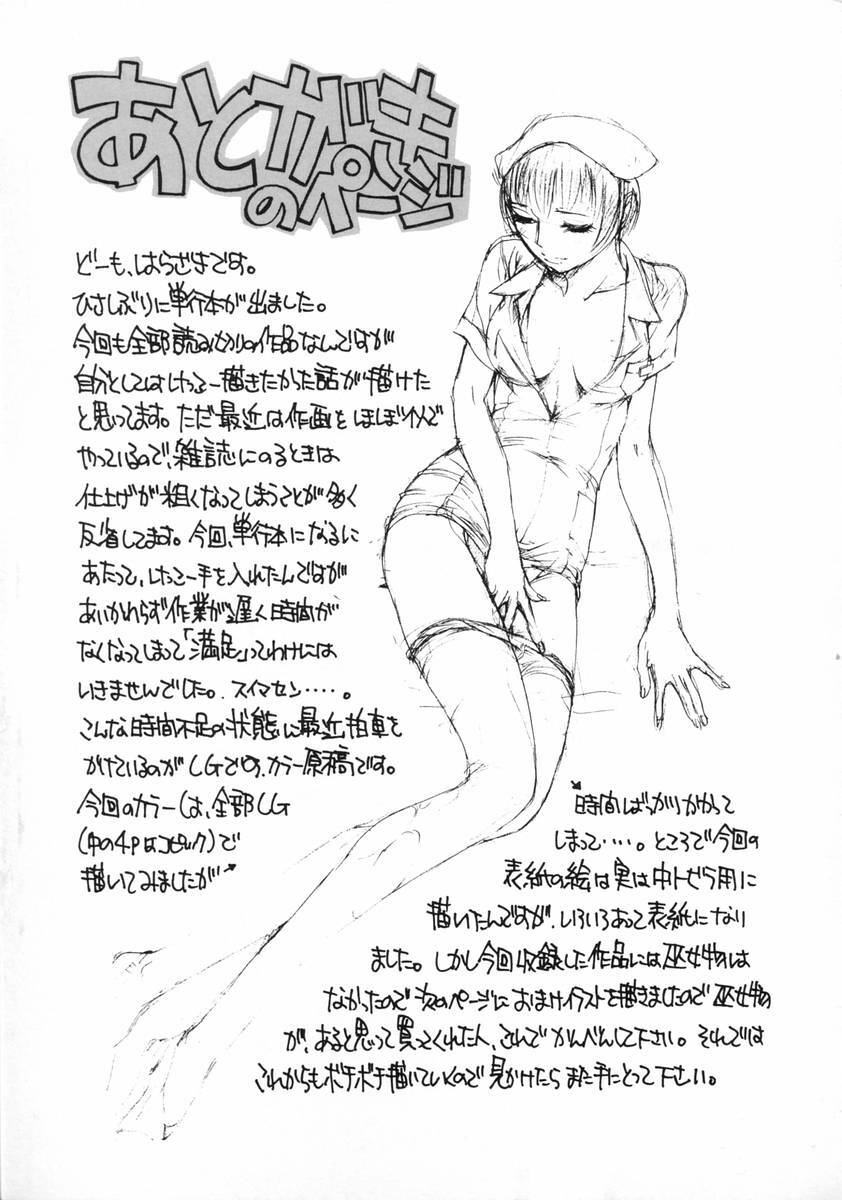 あとがき
のページ
どーも、はらざきです。
ひさしぶりに単行本が出ました。
今回も全部読み切りの作品なんですが
自分としてはけっこー描きたかった話が描けた
と思ってます。ただ最近は作画をほぼ1人で
やっているので、雑誌にのるときは
仕上げが粗くなってしまうことが多く
反省してます。今回、単行本になるに
あたって、けっこー手を入れたんですが
あいかわらず作業が遅く時間が
なくなってしまって「満足」ってわけには
いきませんでした。スイマセン・・・・。
こんな時間不足の状態に最近拍車を
かけているのがCGです、カラー原稿です。
今回のカラーは、全部CG
(中の4Pはコピック)で
描いてみましたが
時間ばっかりかかって
しまって・・・・。ところで今回の
表紙の絵は実は中トビラ用に
描いたんですが、いろいろあって表紙になり
ました。しかし今回収録した作品には巫女物は
なかったので次のページにおまけイラストを描きましたので巫女物
が、あると思って買ってくれた人、これでかんべんして下さい。それでは
これからもボチボチ描いていくので見かけたらまた手にとって下さい。